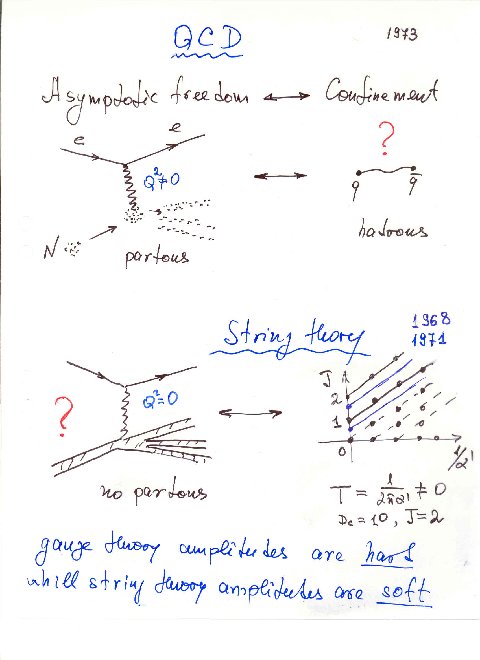 QCD 1973
Asymptotic freedom ↔ Confinement
e e ?
Q²≠0 ↔ q q̄
N partons hadrons
String theory 1968
1971
? Q²=0 ↔ J 2 1 0 1/α'
no partons T = 1/2πα' ≠ 0
Dc = 10, J=2
gauge theory amplitudes are hard
whill string theory amplitudes are soft